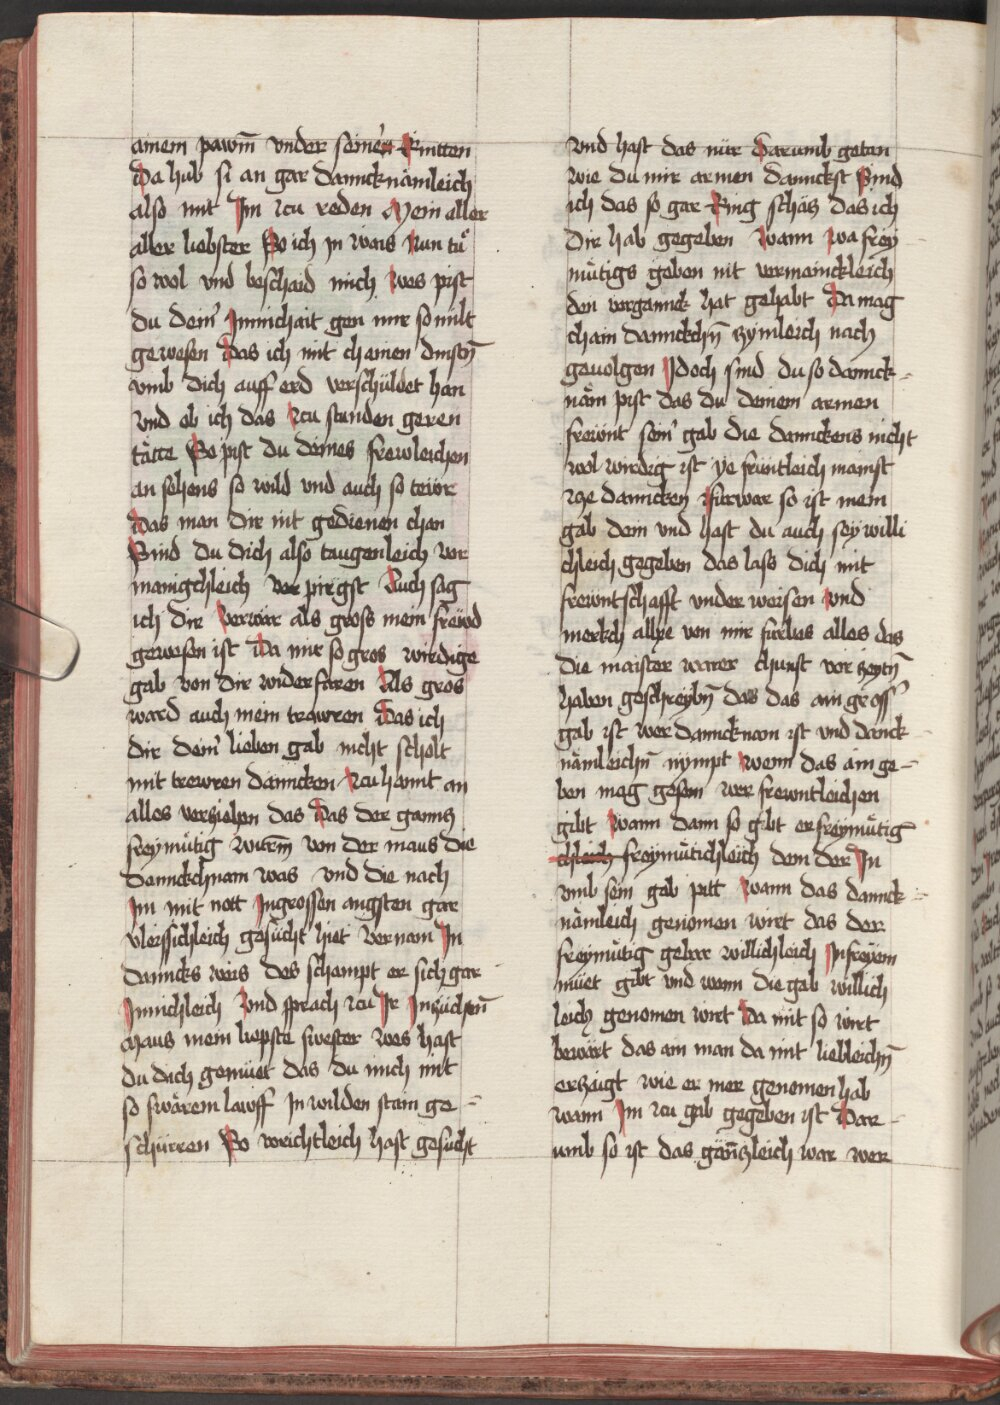 ainem pawm̄ vnder seiner Rintten
Da hub si an gar dannicknämleich
also mit Im zcu reden Mein aller
aller liebster So ich Jn wais Nun tů
so wol vnd beschaid mich Wes pist
du dein' Innichait gen mir so milt
gewesen Das ich mit chainen dinstn̄
vmb dich auff erd verschüldet han
Vnd ob ich das zcu stunden geren
täcte So pist du deines frewleichen
an sehens so wild vnd auch so tewr
Das man dir nit gedienen chan
Sind du dich also taugenleich vor
manigchleich ver pirgst Auch sag
ich dir verwär als gross mein frewd
gewesen ist Da mir so gros wirdige
gab von dir widerfaren Als gros
ward auch mein trawren Das ich
dir dein' lieben gab nicht scholt
mit trewren dannicken Zcu hannt an
alles verziehen das Das der gannz
freymütig wurm̄ von der maus die
dannckchnam was vnd die nach
Im mit nott Ingrossen angsten gar
vleissichleich gesücht hiet Vernam In
dannicks weis des schampt er sich gar
Innichleich Vnd sprach zcu Ir Inzüchten̄
Maus mein liepste swester Wes hast
du dich gemüet das du mich mit
so swärem lawff In wilden stam ge=
schürren So weichtleich hast gesucht
Vnd hast das nür Darumb getan
wie du mir armen dannickst Sind
ich das so gar Ring schäcz das ich
dir hab gegeben Wann wa frey
mütigs geben nit vermainckleich
den vorganntk hat gehabt Da mag
chain dannickchn̄ zymleich nach
geuolgen Idoch sind du so dannick=
näm pist das du deinem armen
frewnt sein' gab die dannickens nicht
wol wirdig ist ye früntleich mainst
zcze dannicken Fürwar so ist mein
gab dein vnd hast du auch sey willi
chleich gegeben das lass dich mit
frewntschafft vnder weisen Vnd
merkch allhe von mir fürbas alles das
die maister warer chunst vor zeytn̄
haben geschreybn̄ das das ain gross'
gab ist wer dannicknam ist vnd danck=
nämleichn̄ nympt Wenn das ain ge=
ben mag gesein wer frewntleichen
gibt Wann dann so gibt er freymütig
chleich freymütichleich dem der In
vmb sein gab pitt Wann das dannck=
nämleich genomen wirt das der
freymütig geber willichleich Infreyem
müet gibt vnd wann die gab willich
leich genomen wirt Da mit so wirt
bewärt das ain man da mit liebleichn̄
erzaigt wie er mer genemen hab
wann Im zcu gab gegeben ist Dar=
umb so ist das gän̄zleich war wer